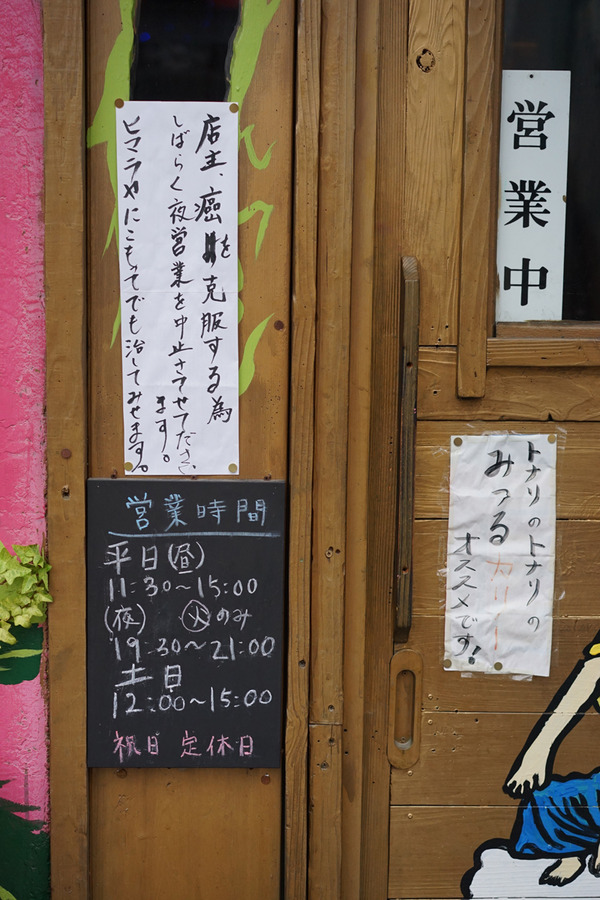 営業中
店主、癌を克服する為
しばらく夜営業を中止させてださい
ます。
ヒマラヤにこもってでも治してみせます。
トナリのトナリの
みつる カリー
オススメです!
営業時間
平日(昼)
11:30~15:00
(夜) 火のみ
19:30~21:00
土日
12:00~15:00
祝日 定休日